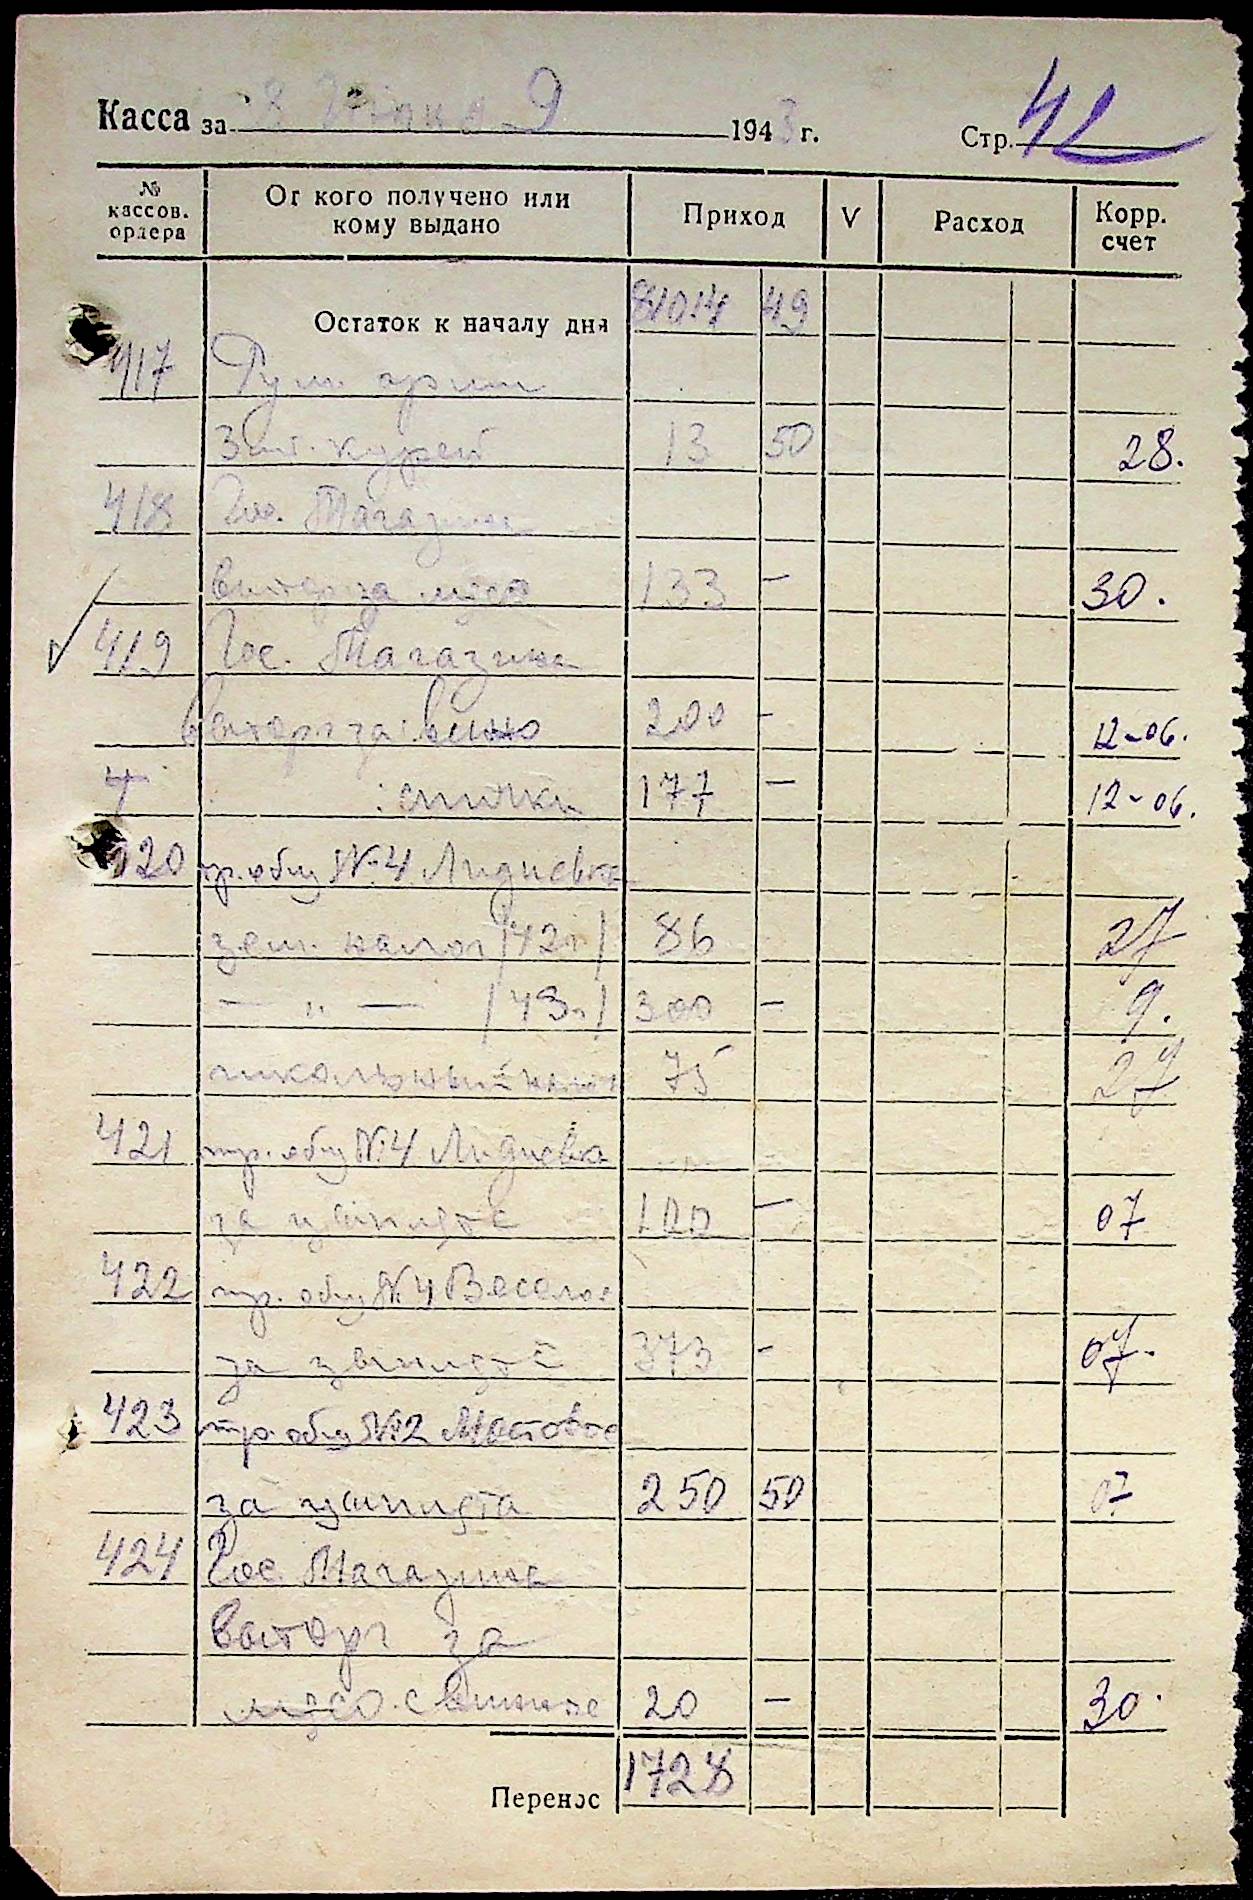 Касса за 8 Июня 9 1943 г. Стр. 42
№ кассов. ордера От кого получено или кому выдано Приход V Расход Корр. счет
Остаток к началу дня 81014 49
417 Рум.
3 шт. курей 13 50 28.
418 Гос. Магазин
за мясо 133 — 30.
419 Гос. Магазина
за: вино 200 — 12-06.
: спички 177 — 12-06.
420 пр. общ №4 Лидиевка
зем. налог /42г/ 86 27
— " — /43г/ 300 — 9.
школьный налог 75 27
421 пр. общ №4 Лидиевка
за 100 — 07
422 пр. общ №4 Веселое
за 373 - 07.
423 пр. общ №2 Мостовое
за 250 50 07
424 Гос. Магазин
за
мясо свиное 20 — 30.
Перенос 1728